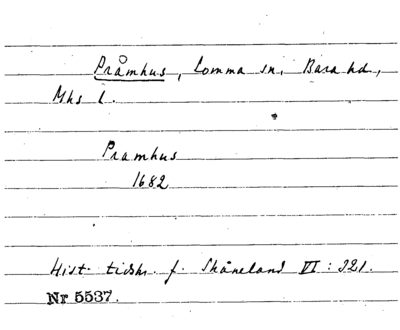 Pråmhus, Lomma sn, Bara hd,
Mhs l.
Pramhus
1682
Hist. tidskr. f. Skåneland VI: 321.
Nr 5537.